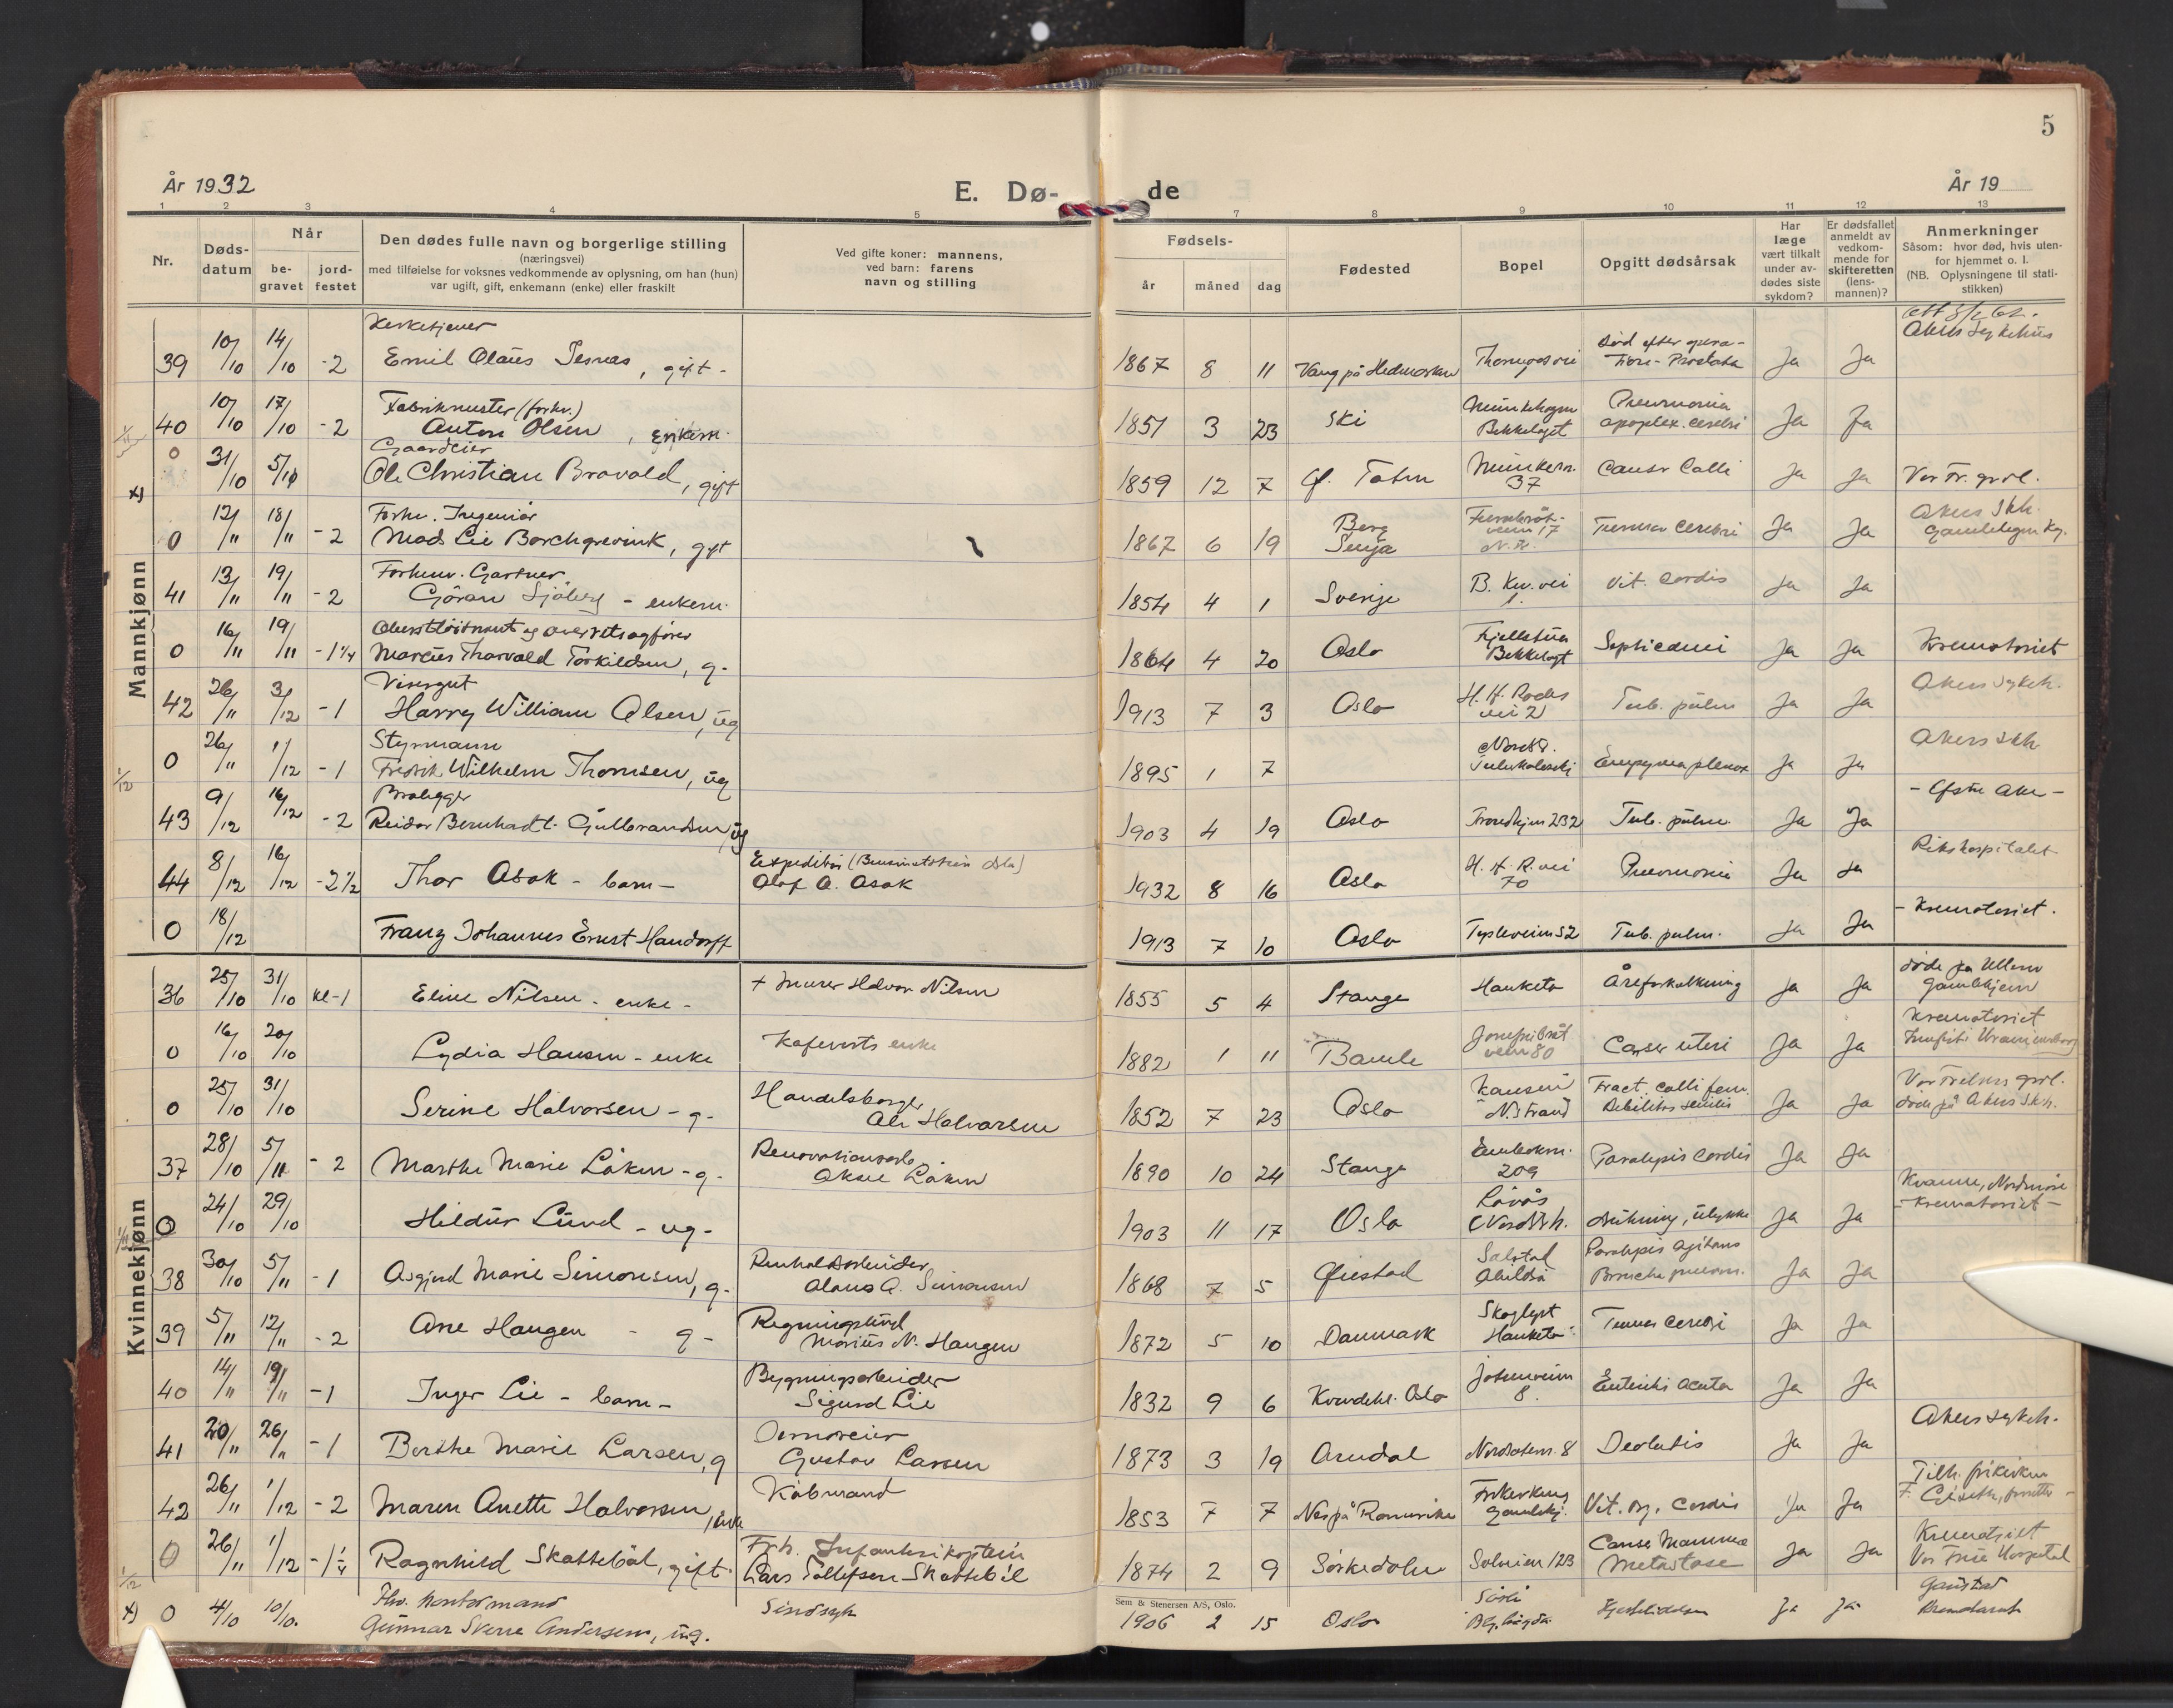 5
År 1932
E. Dø-
de
År 19
1 2 3 4 5 7 8 9 10 11 12 13
Nr.
Døds-
datum
Når
be-
gravet
jord-
festet
Den dødes fulle navn og borgerlige stilling
(næringsvei)
med tilføielse for voksnes vedkommende av oplysning, om han (hun)
var ugift, gift, enkemann (enke) eller fraskilt
Ved gifte koner: mannens,
ved barn: farens
navn og stilling
Fødsels-
år måned dag
Fødested
Bopel
Opgitt dødsårsak
Har
læge
vært tilkalt
under av-
dødes siste
sykdom?
Er dødsfallet
anmeldt av
vedkom-
mende for
skifteretten
(lens-
mannen)?
Anmerkninger
Såsom: hvor død, hvis uten-
for hjemmet o. l.
(NB. Oplysningene til stati-
stikken)
Mannkjønn
Kirketjener
39 10/10 14/10 -2 Emil Olaus , gift - 1867 8 11 Vang på Hedmarken Død efter opera-
tion - Prostata Ja Ja Akers Sykehus
Fabrikmester (forhv.)
40 10/10 17/10 -2 Anton Olsen, enkem. 1851 3 23 Ski Bekkelaget Pneumonia
apoplex. cerebri Ja Ja
Gaardeier
x) 0 31/10 5/11 Ole Christian Bravold, gift 1859 12 7 Ø. Toten 37 Cancer Colli Ja Ja Vor Fr. grvl.
Forhv. Ingeniør
0 12/" 18/" -2 Mads Lie Borchgrevink, gift 1867 6 19 Berg
Senja 17 Tumor cerebri Ja Ja Akers Skh.
Forhenv. Gartner
41 13/" 19/" -2 Göran Sjöberg - enkem. 1854 4 1 Sverige B. Kv. vei
1. Vit. Cordis Ja Ja
Oberstløitnant og overrettssagfører
0 16/" 19/" -1¼ Marcus Thorvald Torkildsen, g. 1864 4 20 Oslo Fjellstua
Bekkelaget Septicemi Ja Ja Krematoriet
Visergut
42 26/" 3/12 -1 Harry William Olsen, ug 1913 7 3 Oslo H. H. Rodes
vei 2 Tub. pulm Ja Ja Akers sykeh.
Styrmann
0 26/" 1/12 -1 Fredrik Wilhelm Thomsen, ug 1895 1 7 Empyema pleurae Ja Ja Akers Skh
Brolegger
43 9/12 16/12 -2 Reidar Bernhardt Gulbrandsen, ug 1903 4 19 Oslo Trondhjem 232 Tub. pulm. Ja Ja - Østre Aker -
44 8/12 16/12 -2½ Thor Asak - barn - Expeditør
Olaf A. Asak 1932 8 16 Oslo H. H. R. vei
70 Pneumonia Ja Ja Rikshospitalet
0 18/12 Franz Johannes Ernst Handorff 1913 7 10 Oslo 52 Tub. pulm. Ja Ja - Krematoriet.
Kvinnekjønn
36 25/10 31/10 kl-1 Eline Nilsen - enke - + Murer Halvor Nilsen 1855 5 4 Stange Hauketo Åreforkalkning Ja Ja døde på Ullern
Gamlehjem
0 16/10 20/10 Lydia Hansen - enke enke 1882 1 11 Bamle 80 Cancer uteri Ja Ja Krematoriet
0 25/10 31/10 Serine Halvorsen - g. Handelsborger
Ole Halvorsen 1852 7 23 Oslo N.Strand Fract. colli fem.
Debilitas senilis Ja Ja Vor Frelsers grvl.
døde på Akers Skh.
37 28/10 5/11 -2 Marthe Marie Låken - g. Renovationsarb
Aksel Låken 1890 10 24 Stange 209 Paralysis Cordis Ja Ja
0 24/10 29/10 Hildur Lund - ug - 1903 11 17 Oslo drukning, ulykke Ja Ja Kvanne, Nordmøre
- Krematoriet -
38 30/10 5/" -1 Asgjerd Marie Simonsen, g. Renholdsarbeider
Olaus A. Simonsen 1868 7 5 Paralysis agitans
Broncho pneum. Ja Ja
39 5/" 12/" -2 Ane Haugen - g - Marius N. Haugen 1872 5 10 Danmark Skoglyst
Hauketo Tumor cerebri Ja Ja
40 14/" 19/" -1 Inger Lie - barn - Bygningsarbeider
Sigurd Lie 1832 9 6 Kvindekl. Oslo 8. Enteritis acuta Ja Ja
41 20/" 26/" -1 Berthe Marie Larsen, g Gustav Larsen 1873 3 19 Arendal 8 Ja Ja Akers sykeh.
42 26/" 1/12 -2 Maren Anette Halvorsen, enke Købmand 1853 7 7 Nes på Romerike Vit. org. Cordis Ja Ja
0 26/" 1/12 -1¼ Ragnhild Skattebøl, gift Frh. Infanterikaptein
Lars Tollefsen Skattebøl 1874 2 9 Sørkedalen Solveien 123 Cancer Mammae
Metastase Ja Ja Krematoriet
Vor Frue Hospital
Sem & Stenersen A/S, Oslo.
Fhv. Kontormand
x) 0 4/10 10/10. Gunnar Skerre Andersen, ug. Sindssyk 1906 2 15 Oslo Ja Ja Gaustad